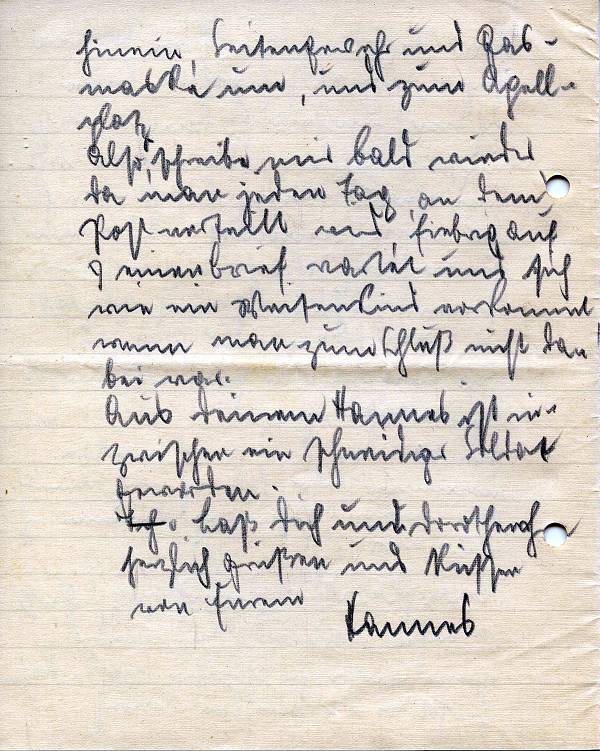 hinein, Seitengewehr und Gas-
maske um, und zum Apell-
platz
Also, schreibe mir bald wieder
da man jeden Tag an dem
Post verteilt wird, fiebrig auf
einen brief wartet und sich
wie ein Weisenkind vorkommt
wenn man zum Schluß nicht da
bei war.
Aus deinem Hannes ist in-
zwischen ein schneidiger Soldat
geworden.
laß dich und
herzlich grüßen und Küssen
von Eurem
Hannes